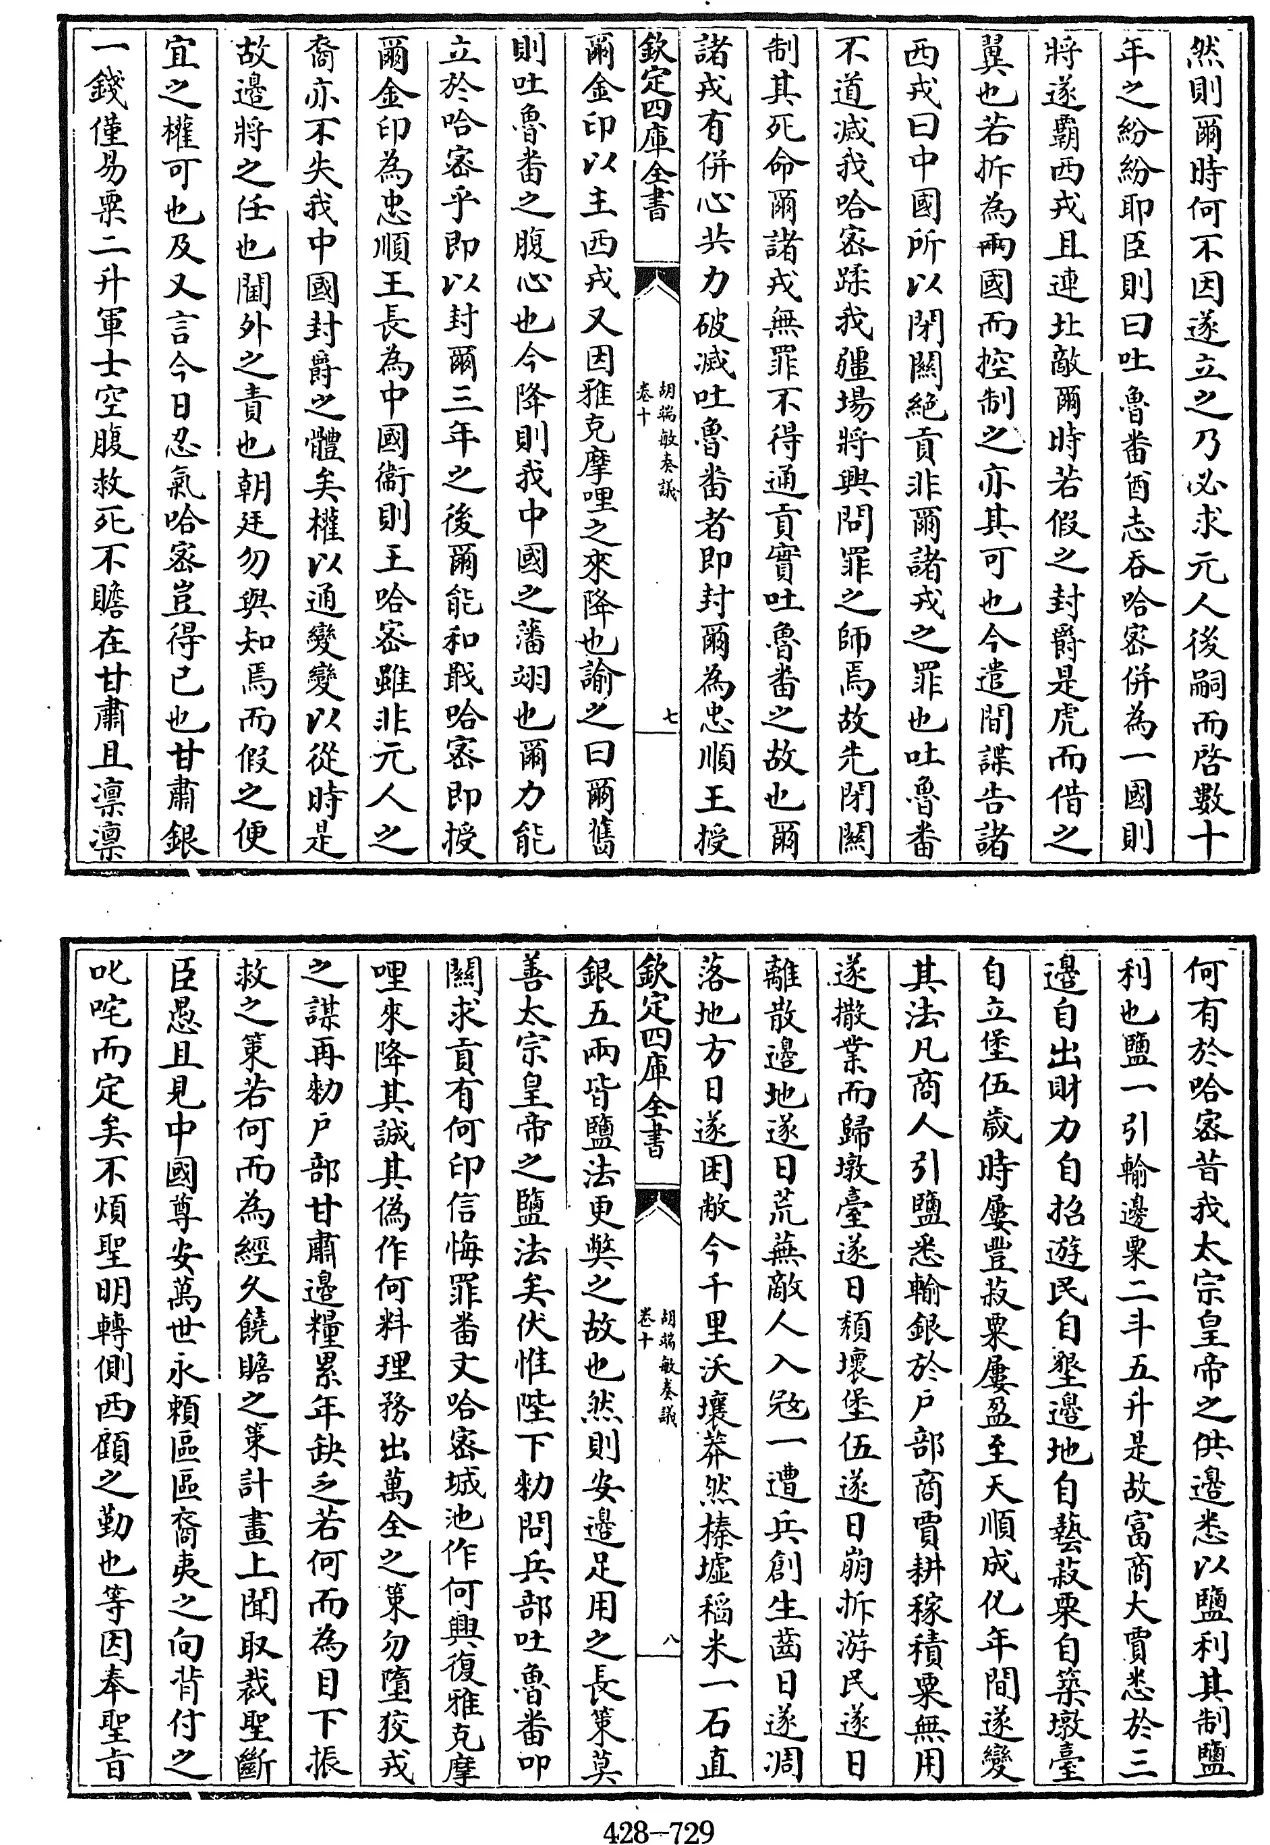 然則爾時何不因遂立之乃必求元人後嗣而啓數十
年之紛紛耶臣則曰吐魯畨酋志吞哈密併為一國則
將遂霸西戎且連北敵爾時若假之封爵是虎而借之
翼也若拆為兩國而控制之亦其可也今遣間諜告諸
西戎曰中國所以閉關絶貢非爾諸戎之罪也吐魯畨
不道滅我哈密蹂我疆場將興問罪之師焉故先閉關
制其死命爾諸戎無罪不得通貢實吐魯畨之故也爾
諸戎有併心共力破滅吐魯畨者即封爾為忠順王授
欽定四庫全書
胡端敏奏議
卷十
七
爾金印以主西戎又因雅克摩哩之來降也諭之曰爾舊
則吐魯畨之腹心也今降則我中國之藩翊也爾力能
立於哈密乎即以封爾三年之後爾能和戢哈密即授
爾金印為忠順王長為中國衞則王哈密雖非元人之
裔亦不失我中國封爵之體矣權以通變變以從時是
故邊將之任也閫外之責也朝廷勿與知焉而假之便
宜之權可也及又言今日忍氣哈密豈得已也甘肅銀
一錢僅易粟二升軍士空腹救死不贍在甘肅且凛凛
何有於哈密昔我太宗皇帝之供邊悉以鹽利其制鹽
利也鹽一引輸邊粟二斗五升是故富商大賈悉於三
邊自出財力自招遊民自墾邊地自藝菽粟自築墩臺
自立堡伍歲時屢豐菽粟屢盈至天順成化年間遂變
其法凡商人引鹽悉輸銀於戶部商賈耕稼積粟無用
遂撒業而歸墩臺遂日頽壞堡伍遂日崩拆游民遂日
離散邊地遂日荒蕪敵人入冦一遭兵創生齒日遂凋
落地方日遂困敝今千里沃壤莽然榛墟稻米一石直
欽定四庫全書
胡端敏奏議
卷十
八
銀五兩皆鹽法更獘之故也然則安邊足用之長策莫
善太宗皇帝之鹽法矣伏惟陛下勅問兵部吐魯畨叩
關求貢有何印信悔罪畨文哈密城池作何興復雅克摩
哩來降其誠其偽作何料理務出萬全之策勿墮狡戎
之謀再勅戶部甘肅邊糧累年缺乏若何而為目下振
救之策若何而為經久饒贍之策計畫上聞取裁聖斷
臣愚且見中國尊安萬世永賴區區裔夷之向背付之
叱咤而定矣不煩聖明轉側西顧之勤也等因奉聖旨
428-729